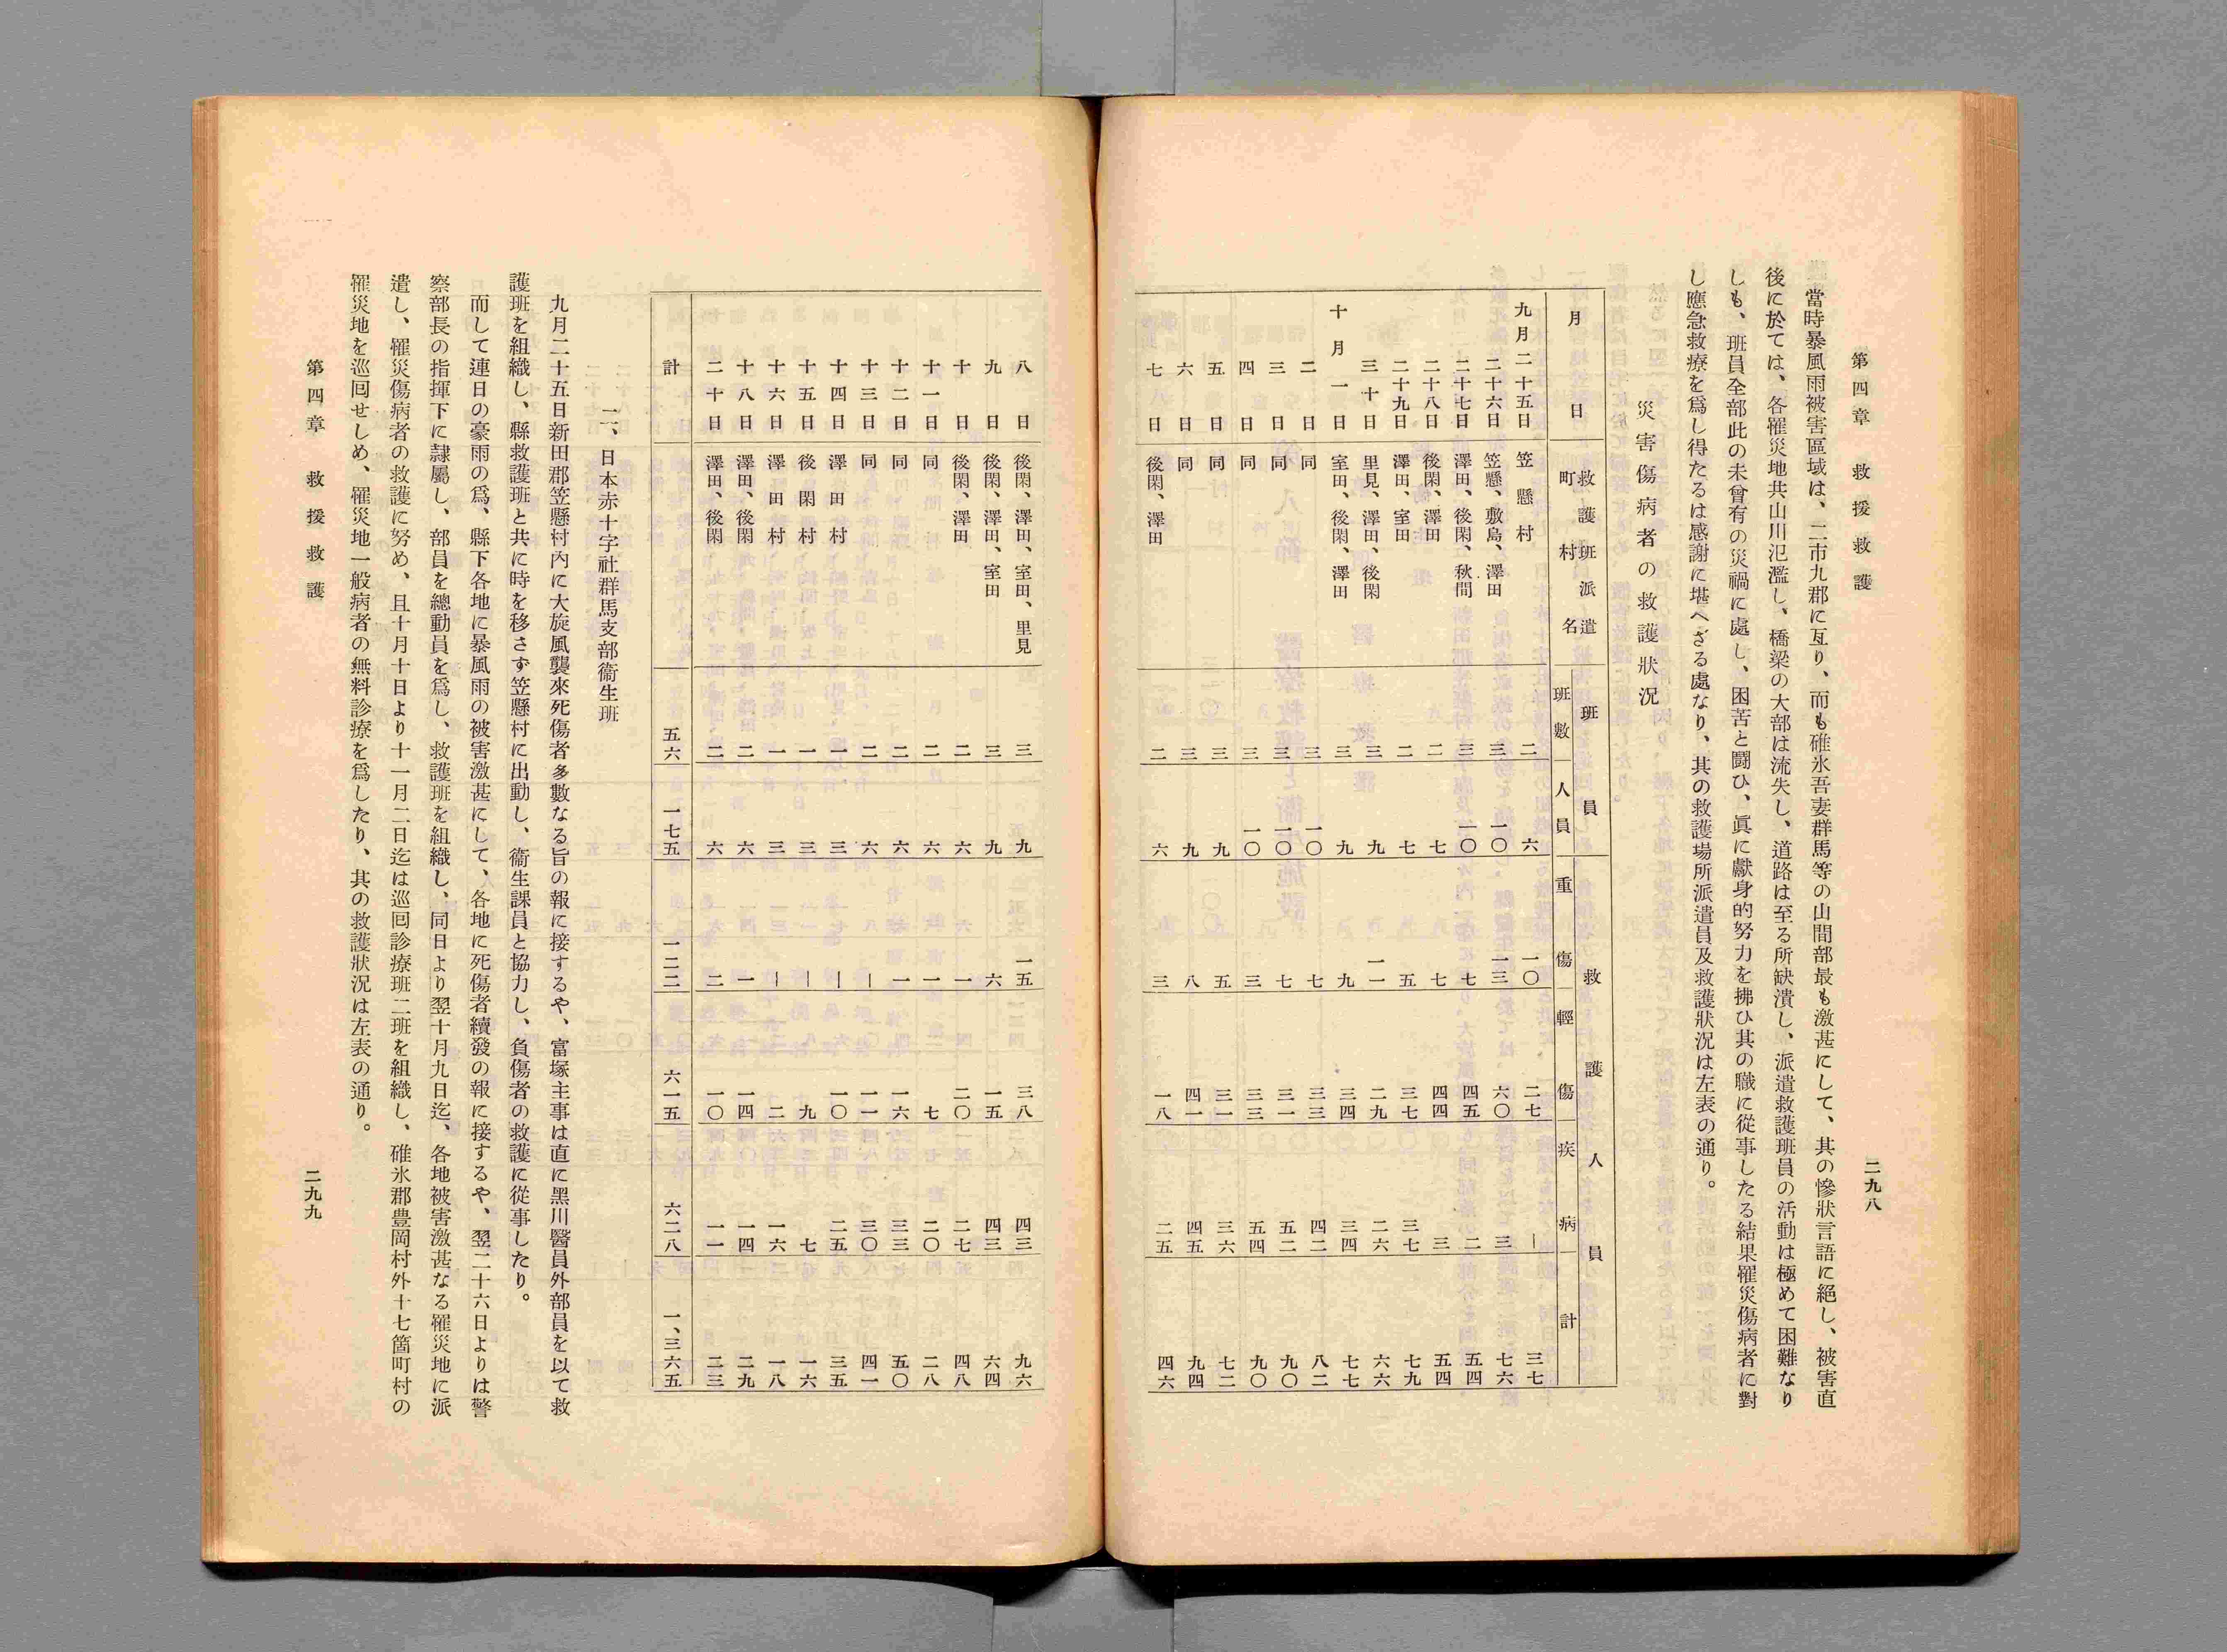 第四章 救援救護
二九八
當時暴風雨被害區域は、二市九郡に亙り、而も碓氷吾妻群馬等の山間部最も激甚にして、其の慘狀言語に絕し、被害直
後に於ては、各罹災地共山川氾濫し、橋梁の大部は流失し、道路は至る所缺潰し、派遣救護班員の活動は極めて困難なり
しも、班員全部此の未曾有の災禍に處し、困苦と鬪ひ、眞に獻身的努力を拂ひ其の職に從事したる結果罹災傷病者に對
し應急救療を爲し得たるは感謝に堪へざる處なり、其の救護場所派遣員及救護狀況は左表の通り。
災害傷病者の救護狀況
月日 救護班派遣町村名 班員 救護人員
班數 人員 重傷 輕傷 疾病 計
九月二十五日 笠懸村 二 六 一〇 二七 ー 三七
二十六日 笠懸、敷島、澤田 三 一〇 一三 六〇 三 七六
二十七日 澤田、後閑、秋間 三 一〇 七 四五 二 五四
二十八日 後閑、澤田 二 七 七 四四 三 五四
二十九日 澤田、室田 二 七 五 三七 三七 七九
三十日 里見、澤田、後閑 三 九 一一 二九 二六 六六
十月一日 室田、後閑、澤田 三 九 九 三四 三四 七七
二日 同 三 一〇 七 三三 四二 八二
三日 同 三 一〇 七 三一 五二 九〇
四日 同 三 一〇 三 三三 五四 九〇
五日 同 三 九 五 三一 三六 七二
六日 同 三 九 八 四一 四五 九四
七日 後閑、澤田 二 六 三 一八 二五 四六
八日 後閑、澤田、室田、里見 三 九 一五 三八 四三 九六
九日 後閑、澤田、室田 三 九 六 一五 四三 六四
十日 後閑、澤田 二 六 一 二〇 二七 四八
十一日 同 二 六 一 七 二〇 二八
十二日 同 二 六 一 一六 三三 五〇
十三日 同 二 六 ー 一一 三〇 四一
十四日 澤田村 一 三 ー 一〇 二五 三五
十五日 後閑村 一 三 ー 九 七 一六
十六日 澤田村 一 三 ー 二 一六 一八
十八日 澤田、後閑 二 六 一 一四 一四 二九
二十日 澤田、後閑 二 六 二 一〇 一一 二三
計 五六 一七五 一二二 六一五 六二八 一、三六五
二、日本赤十字社群馬支部衞生班
九月二十五日新田郡笠懸村內に大旋風襲來死傷者多數なる旨の報に接するや、富塚主事は直に黑川醫員外部員を以て救
護班を組織し、縣救護班と共に時を移さず笠懸村に出動し、衞生課員と協力し、負傷者の救護に從事したり。
而して連日の豪雨の爲、縣下各地に暴風雨の被害激甚にして、各地に死傷者續發の報に接するや、翌二十六日よりは警
察部長の指揮下に隷屬し、部員を總動員を爲し、救護班を組織し、同日より翌十月九日迄、各地被害激甚なる罹災地に派
遣し、罹災傷病者の救護に努め、且十月十日より十一月二日迄は巡囘診療班二班を組織し、碓氷郡豊岡村外十七箇町村の
罹災地を巡囘せしめ、罹災地一般病者の無料診療を爲したり、其の救護狀況は左表の通り。
第四章 救援救護
二九九